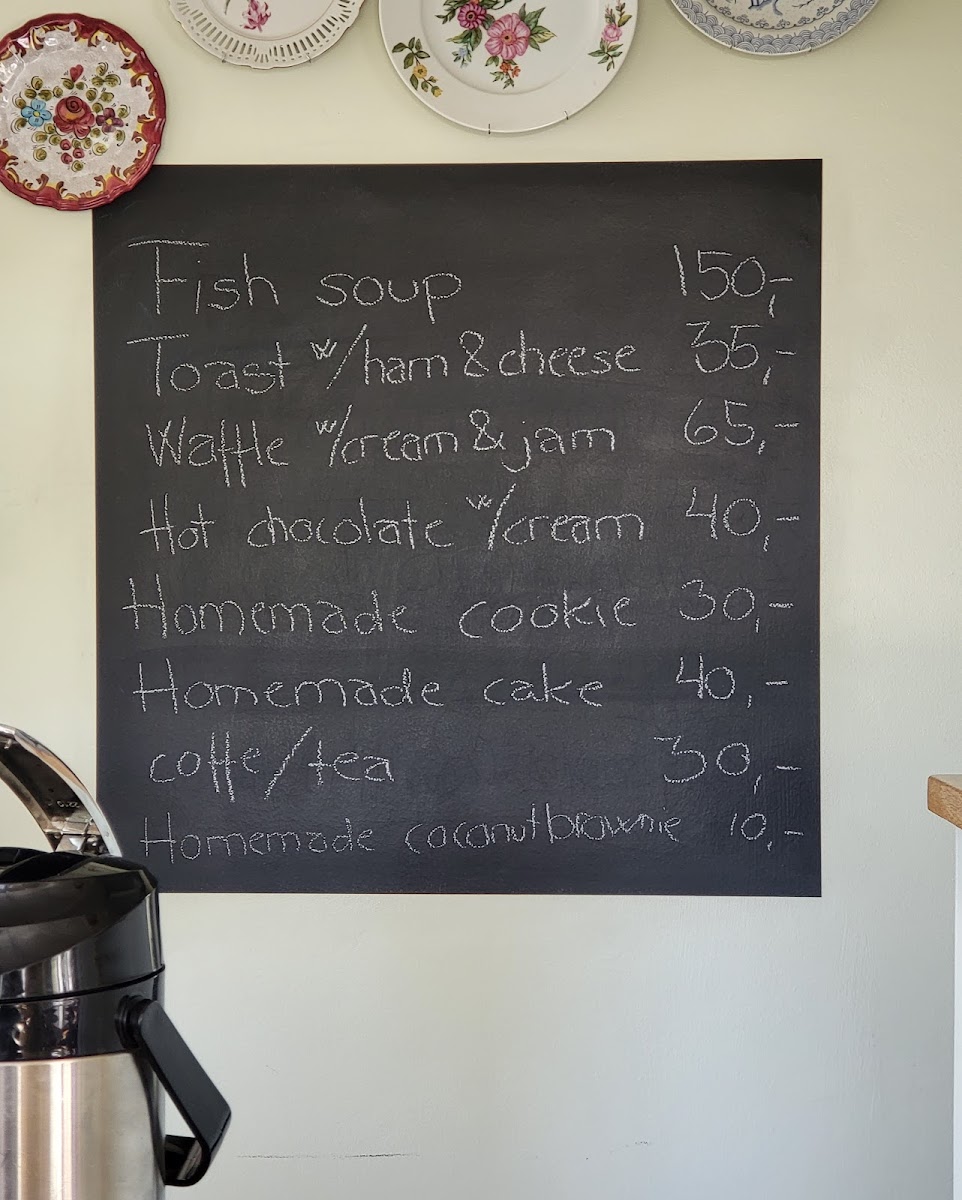 Fish soup 150,-
Toast w/ham & cheese 35,-
Waffle w/cream & jam 65,-
Hot chocolate w/cream 40,-
Homemade cookie 30,-
Homemade cake 40,-
coffe/tea 30,-
Homemade coconutbrownie 10,-